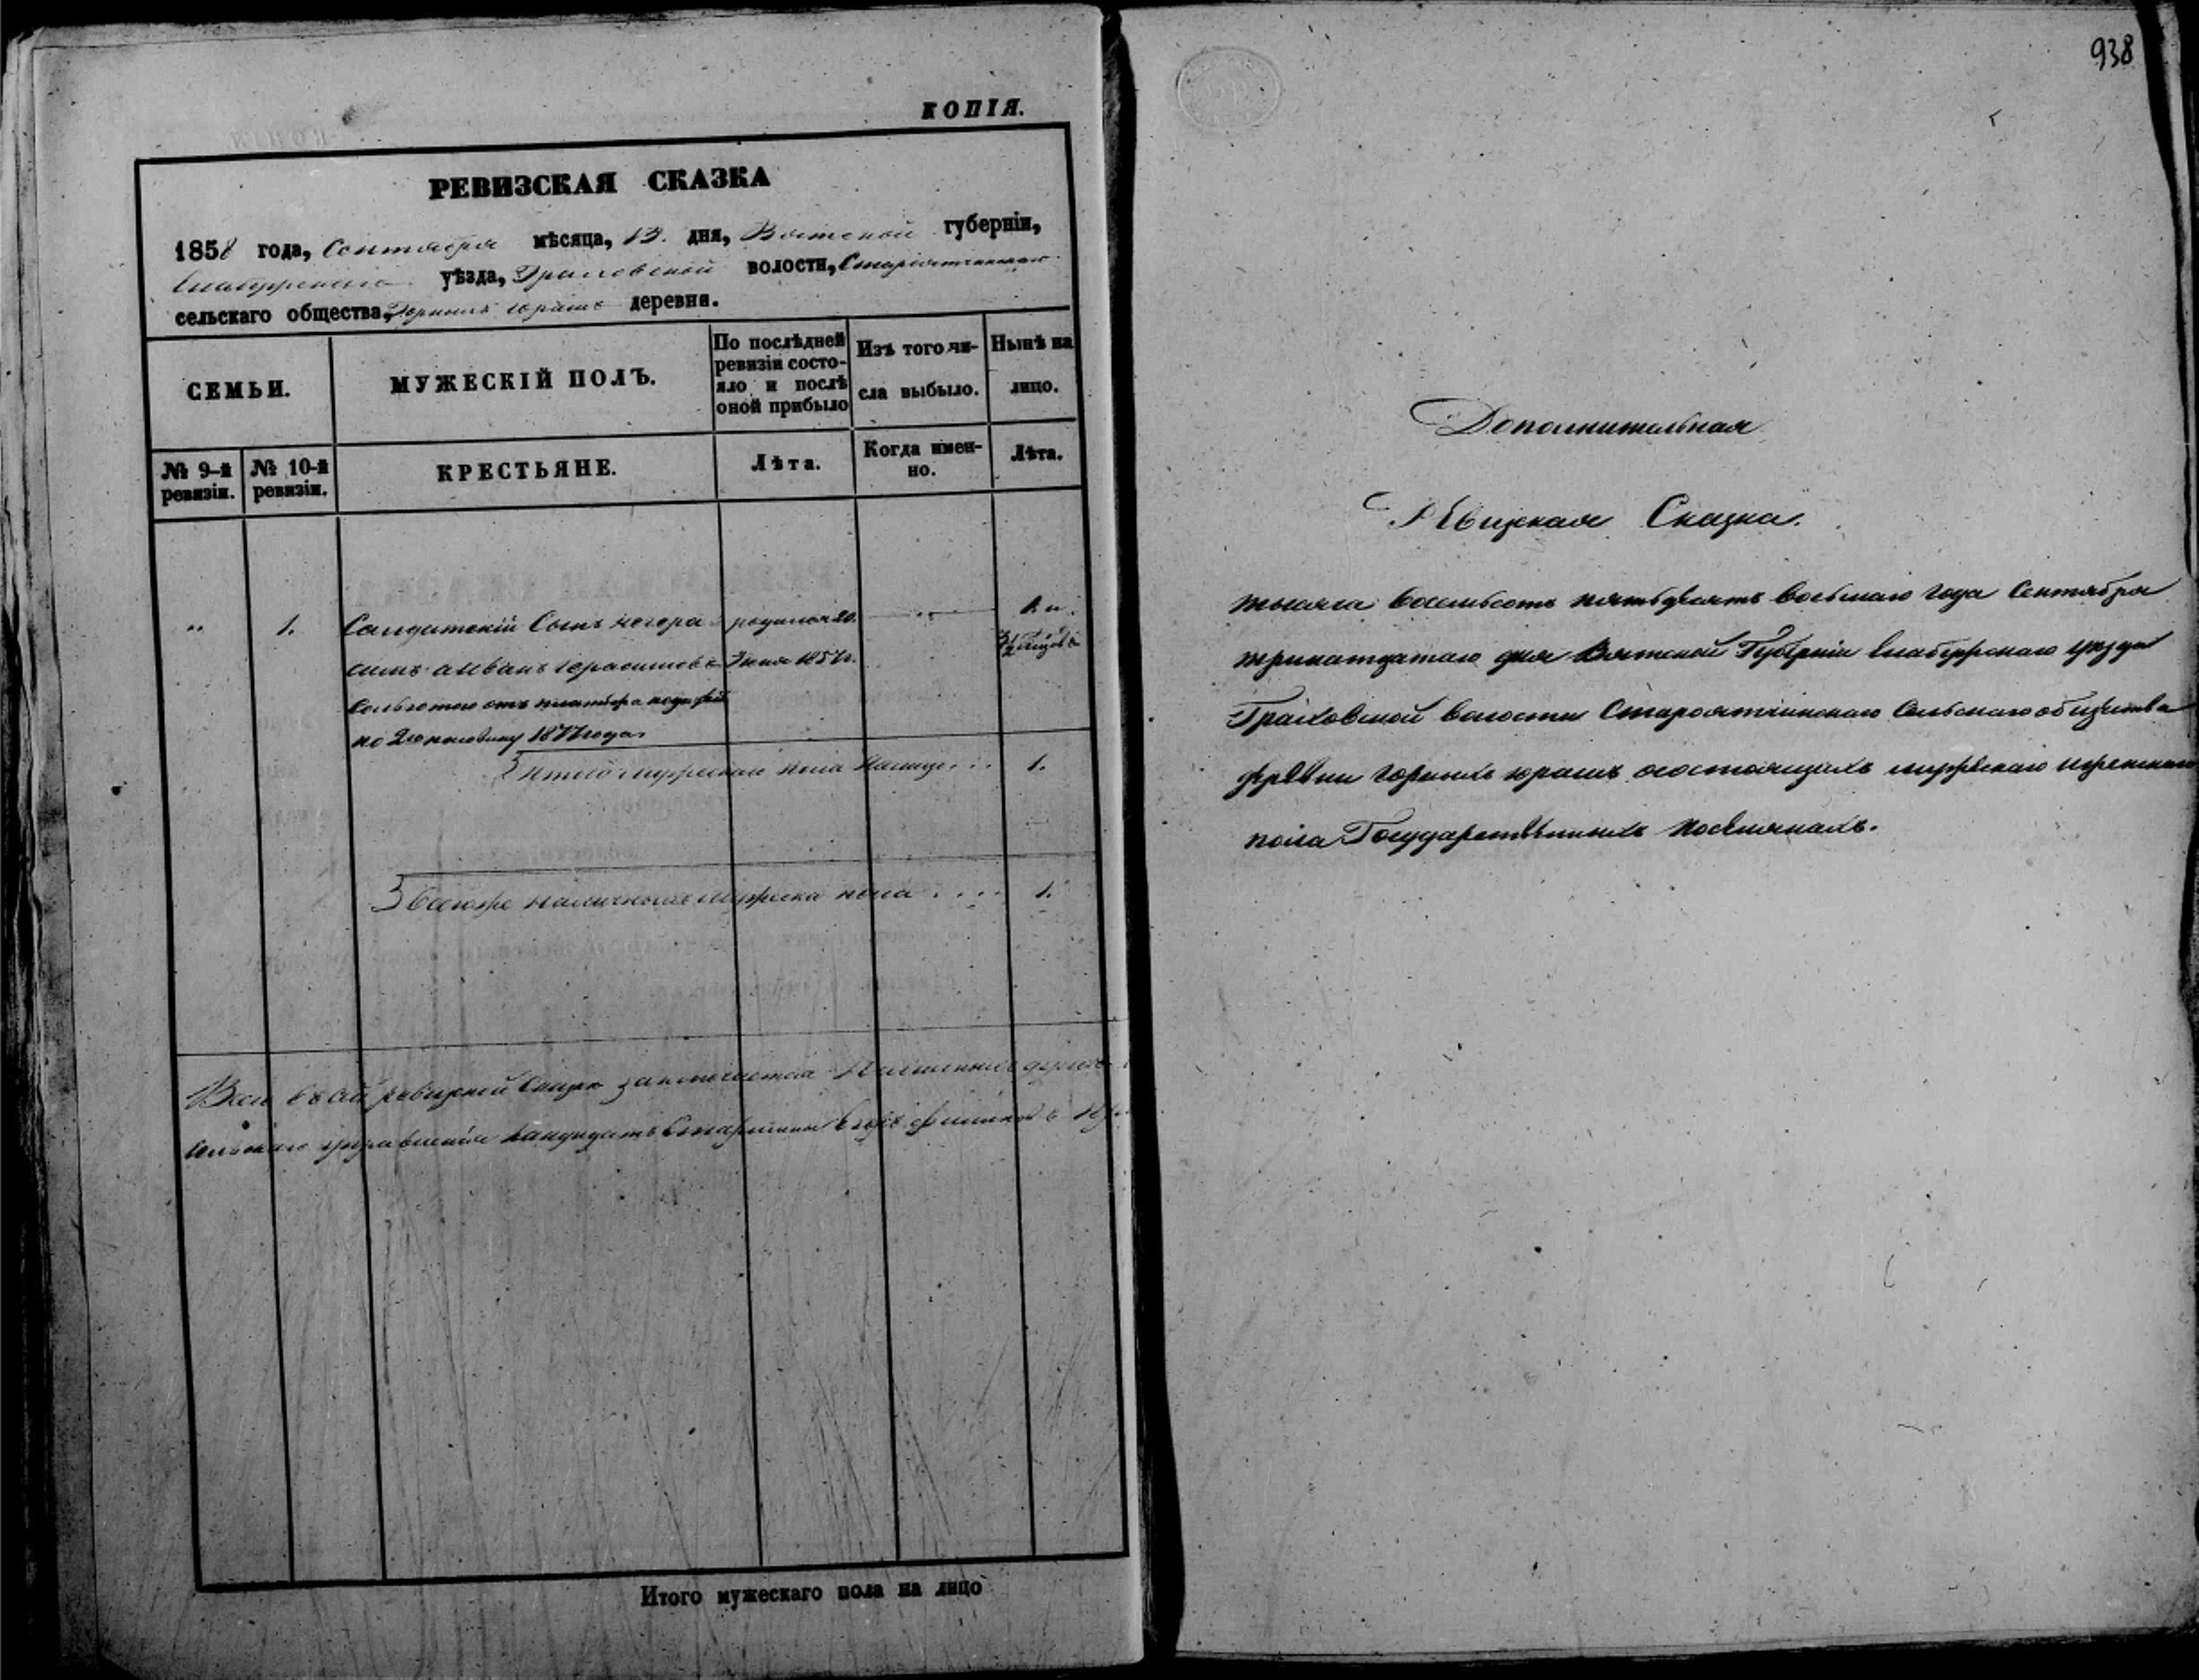 КОПІЯ.
РЕВИЗСКАЯ СКАЗКА
1858 года, Сентября мѣсяца, 13. дня, Вятской губерніи,
Елабужскаго уѣзда, Граховской волости, Староятчинскаго
сельскаго общества, Горнихъ Юрашъ деревня.
СЕМЬИ.
МУЖЕСКІЙ ПОЛЪ.
По послѣдней ревизіи состояло и послѣ оной прибыло
Изъ того числа выбыло.
Нынѣ на лицо.
№ 9-й ревизіи.
№ 10-й ревизіи.
КРЕСТЬЯНЕ.
Лѣта.
Когда именно.
Лѣта.
„ 1. Салдатскій Сынъ родился 20. „ 1. и.
Іюня 1857 г.
по 2ю половину 1877 года
Итого мужеска пола налицо . . . 1.
Всего же наличныхъ мужеска пола . . . . 1.
сельскаго управленія кандидатъ Старшины
Итого мужескаго пола на лицо
938
Дополнительная
Ревизская Сказка.
тысяча восемьсотъ пятьдесятъ восьмаго года Сентября
тринатцатаго дня Вятской Губерніи Елабужскаго уѣзда
Граховской волости Староятчинскаго Сельскаго общества
деревни Горнихъ Юрашъ о состоящихъ мужескаго и женскаго
пола Государственныхъ поселянахъ.